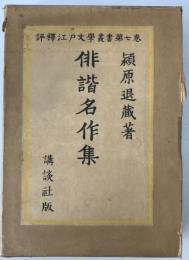 評釋江戸文學叢書第七卷
潁原退藏著
俳諧名作集
講談社版